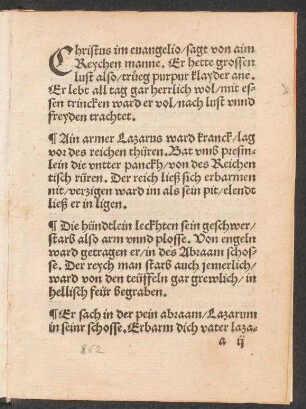 Christus im euangelio/sagt von aim
Reychen manne. Er hette grossen
lust also/trüeg purpur klayder ane.
Er lebt all tag gar herrlich wol/mit es-
sen trincken ward er vol/nach lust vnnd
freyden trachtet.
¶ Ain armer Lazarus ward kranck/lag
vor des reichen thüren. Bat vmb piesin-
lein die vntter panckh/von des Reichen
tisch rüren. Der reich ließ sich erbarmen
nit/verzigen ward im als sein pit/elendt
ließ er in ligen.
¶ Die hündtlein leckhten sein geschwer/
starb also arm vnnd plosse. Von engeln
ward getragen er/in des Abraam schos-
se. Der reych man starb auch jemerlich/
ward von den teüffeln gar grewlich/in
hellisch feür begraben.
¶ Er sach in der pein abraam/Lazarum
in seinr schosse. Erbarm dich vater laza-
a ij
862